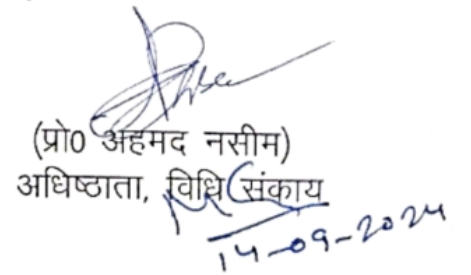 (प्रो0 अहमद नसीम)
अधिष्ठाता, विधि संकाय
14-09-2024